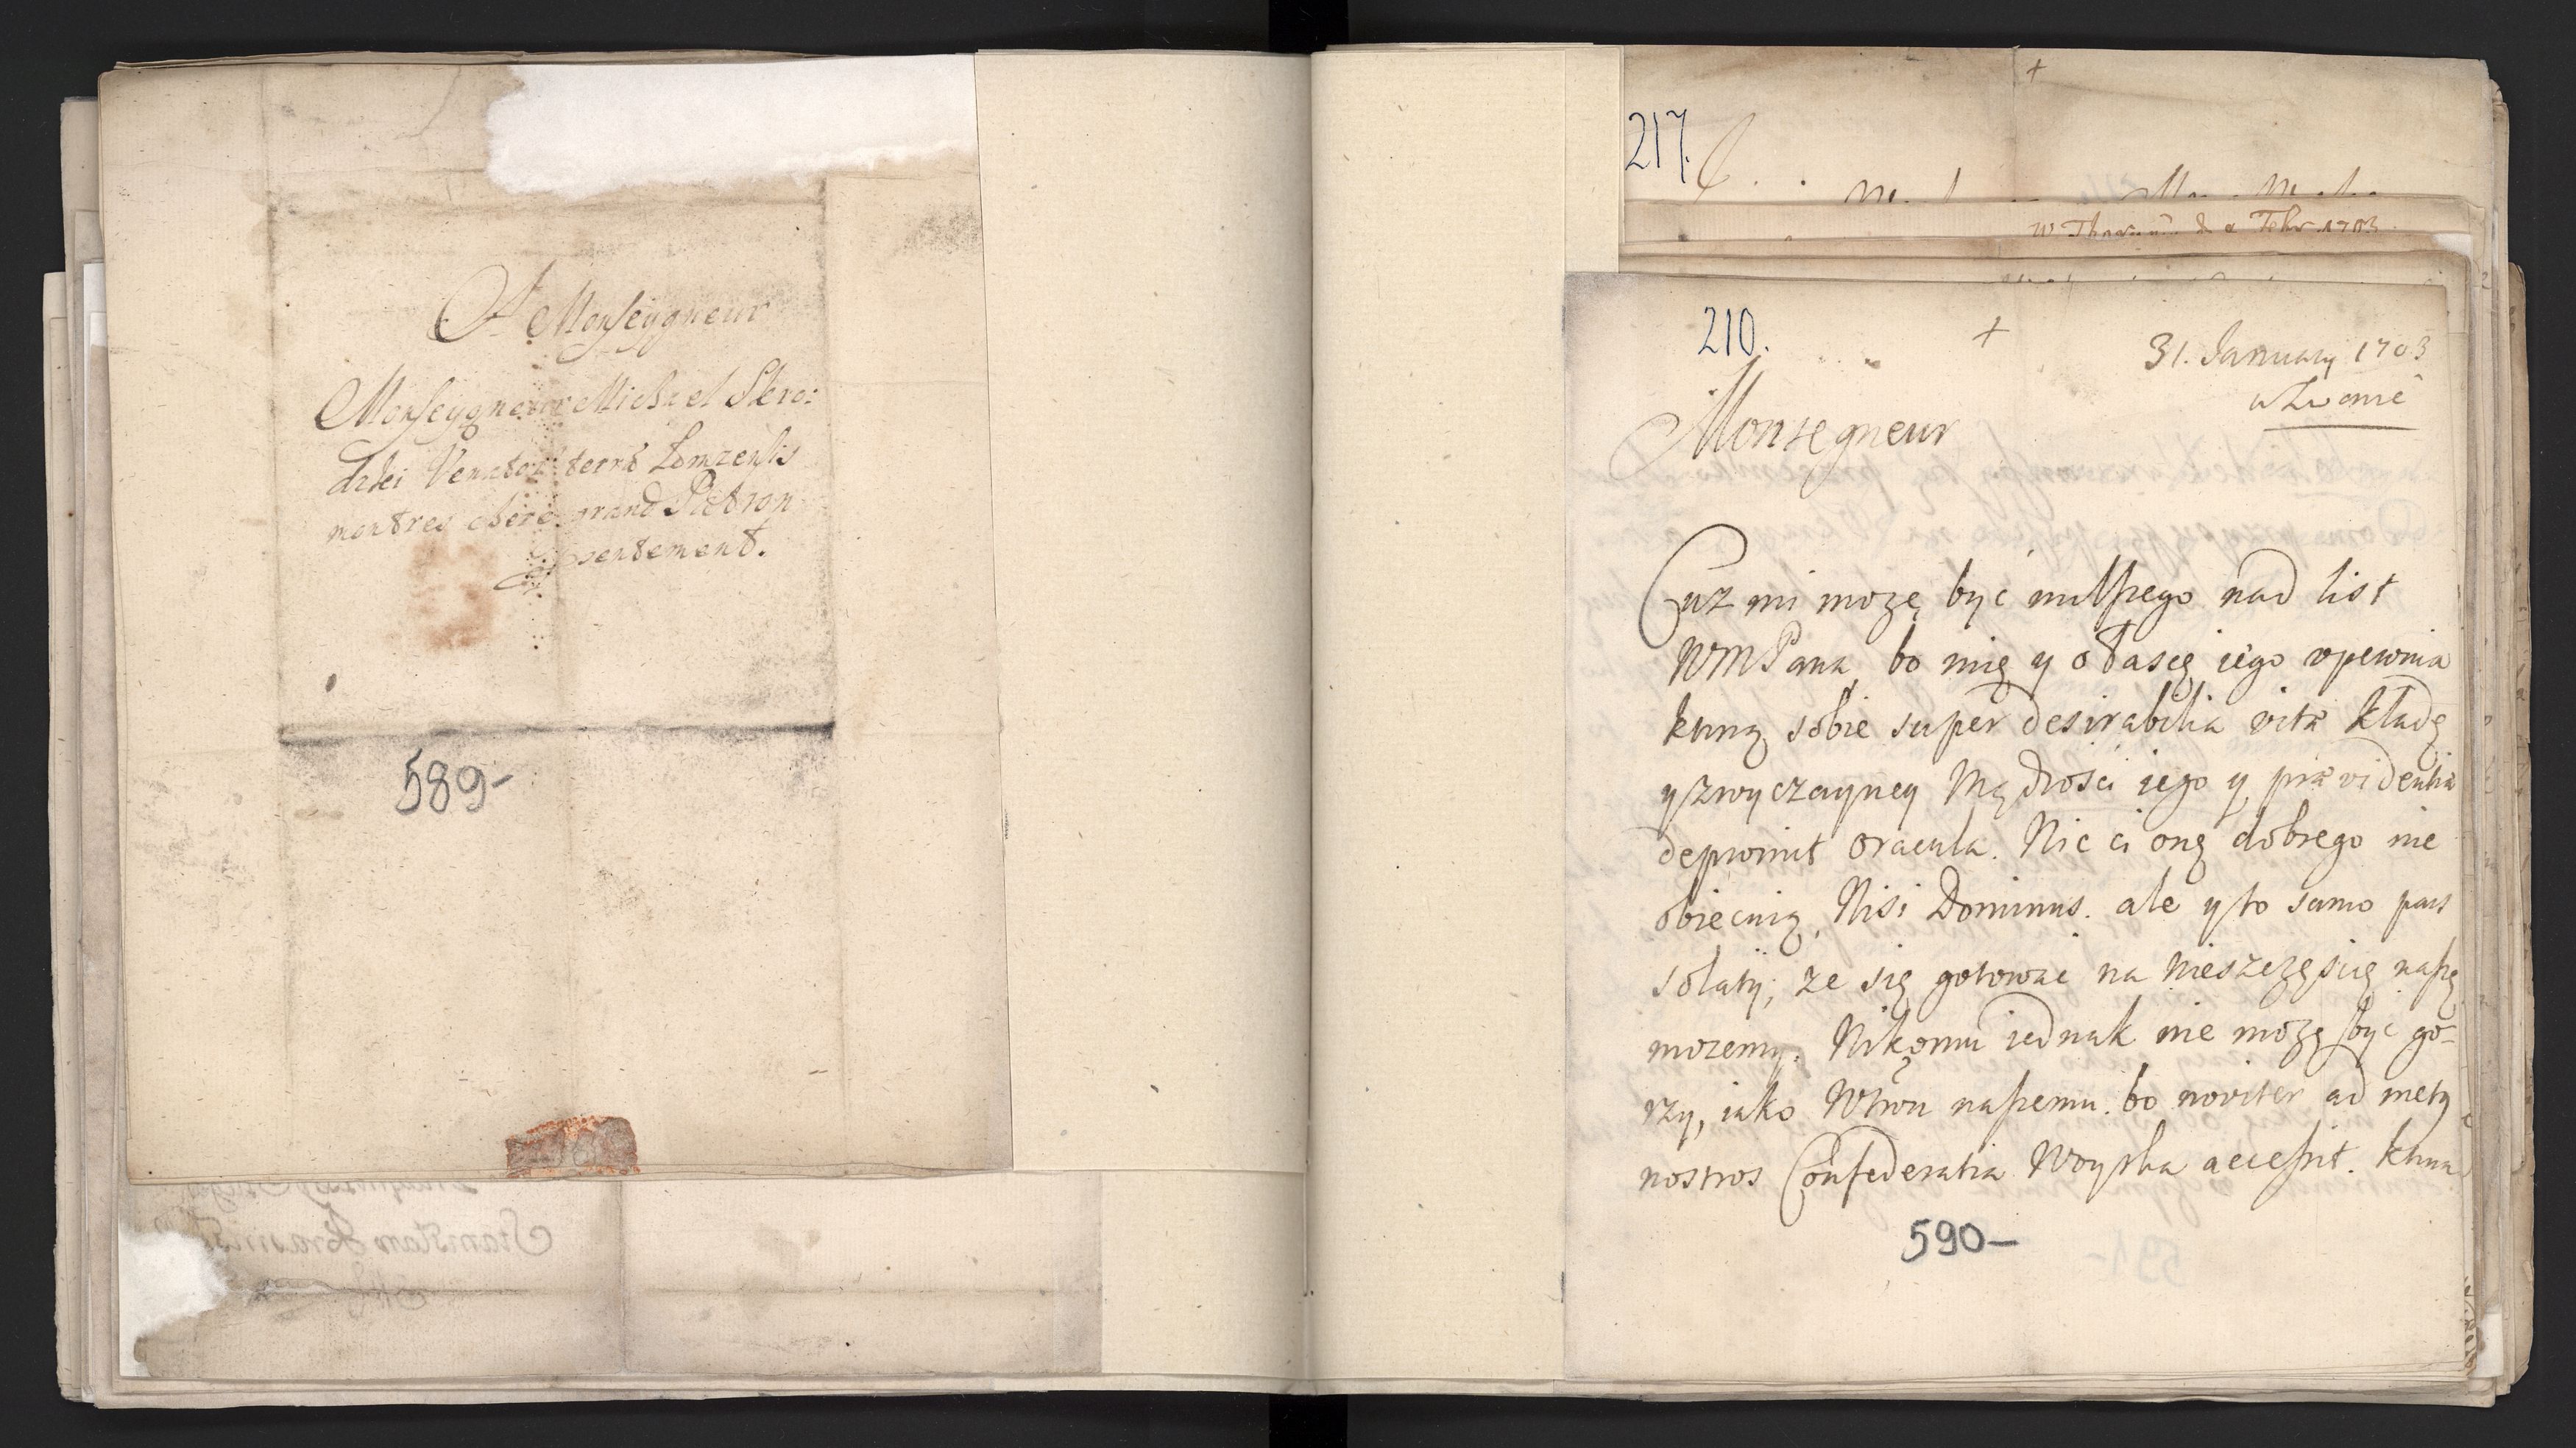 A Monseygneur
Monseygneur Michael Skro:
dzki Venator terræ Lomzensis
mon tres chere grand Patron
presentement.
589-
217.
W Thoruniu d. Febr 1703
210.
+
31. January 1703
w Lwowie
Monsegneur
Cuz mi może być milszego nad list
WMPana, bo mię y o łasce iego upewnia
ktorą sobie super desirabilia vitæ kładę
y zwyczayney Mądrości iego y prævidentiæ
depromit oracula. Nic ci oną dobrego nie
obiecuią, Nisi Dominus. ale y to samo pars
solatij, ze się gotować na nieszczęście nasze
mozemy. Nikomu iednak nie może być go-
rzy, iako Wtwu naszemu. bo noviter ad metas
nostros Confederatia Woyska accessit. ktura
590-